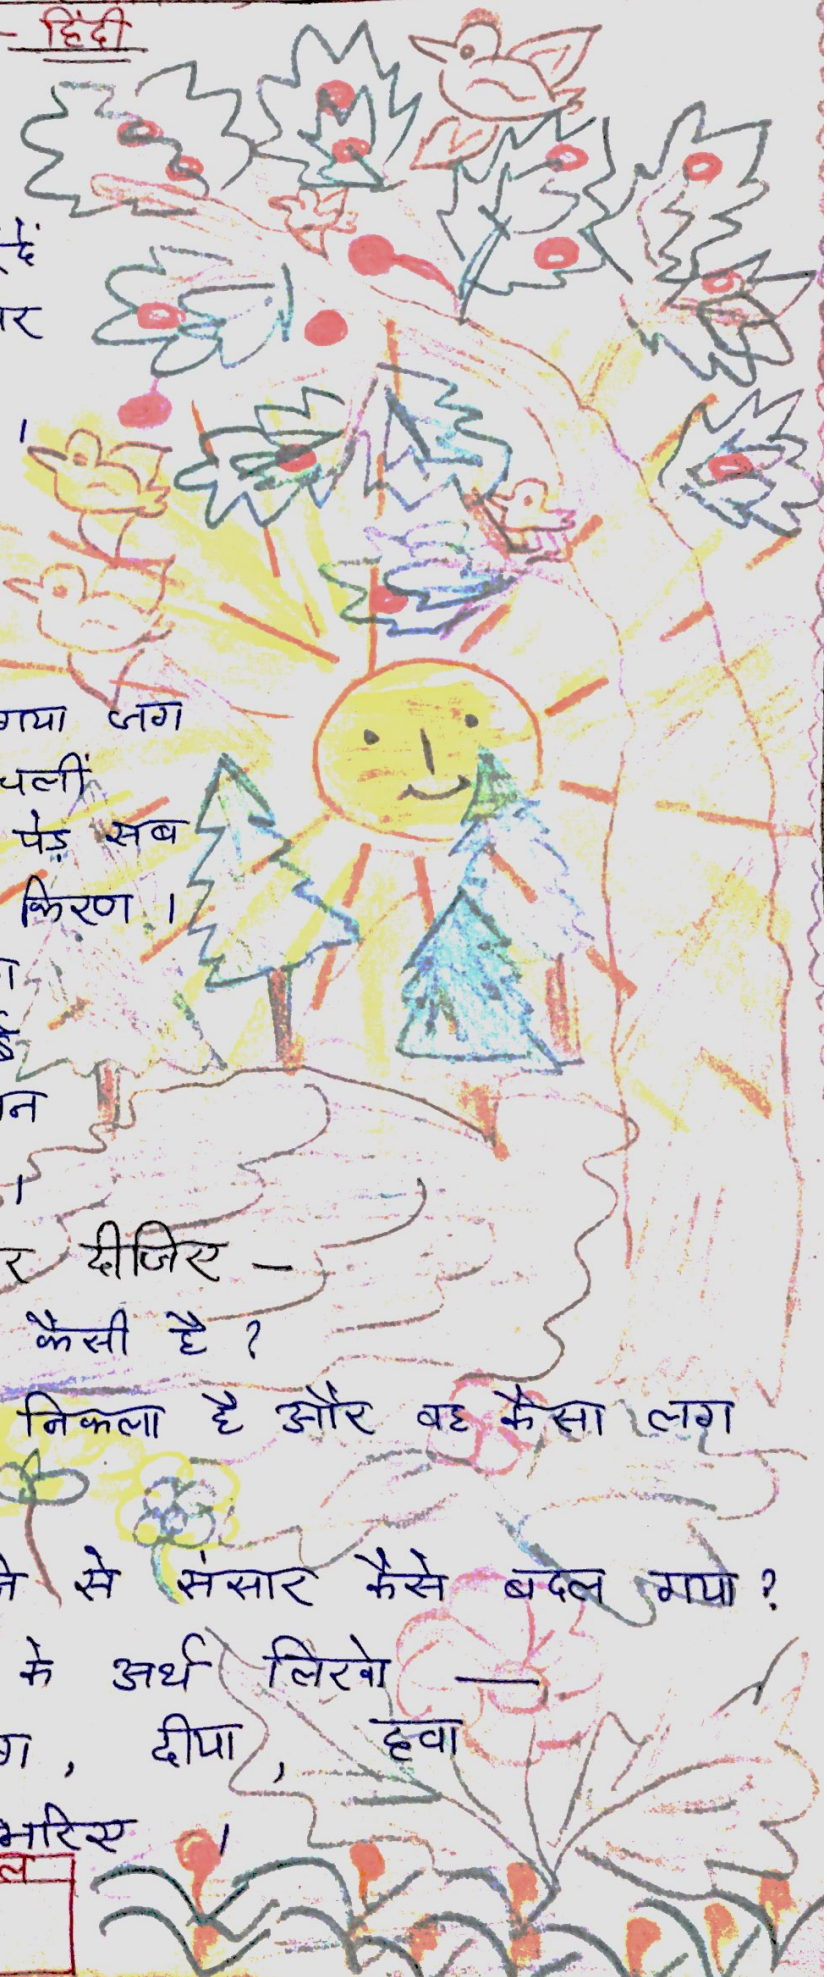 - हिंदी
।
गया जग
चलीं
पेड़ सब
किरण ।
।
दीजिए —
कैसी है ?
निकला है और वह कैसा लग
से संसार कैसे बदल गया ?
के अर्थ लिखो —
, दीपा , हवा
भरिए ।